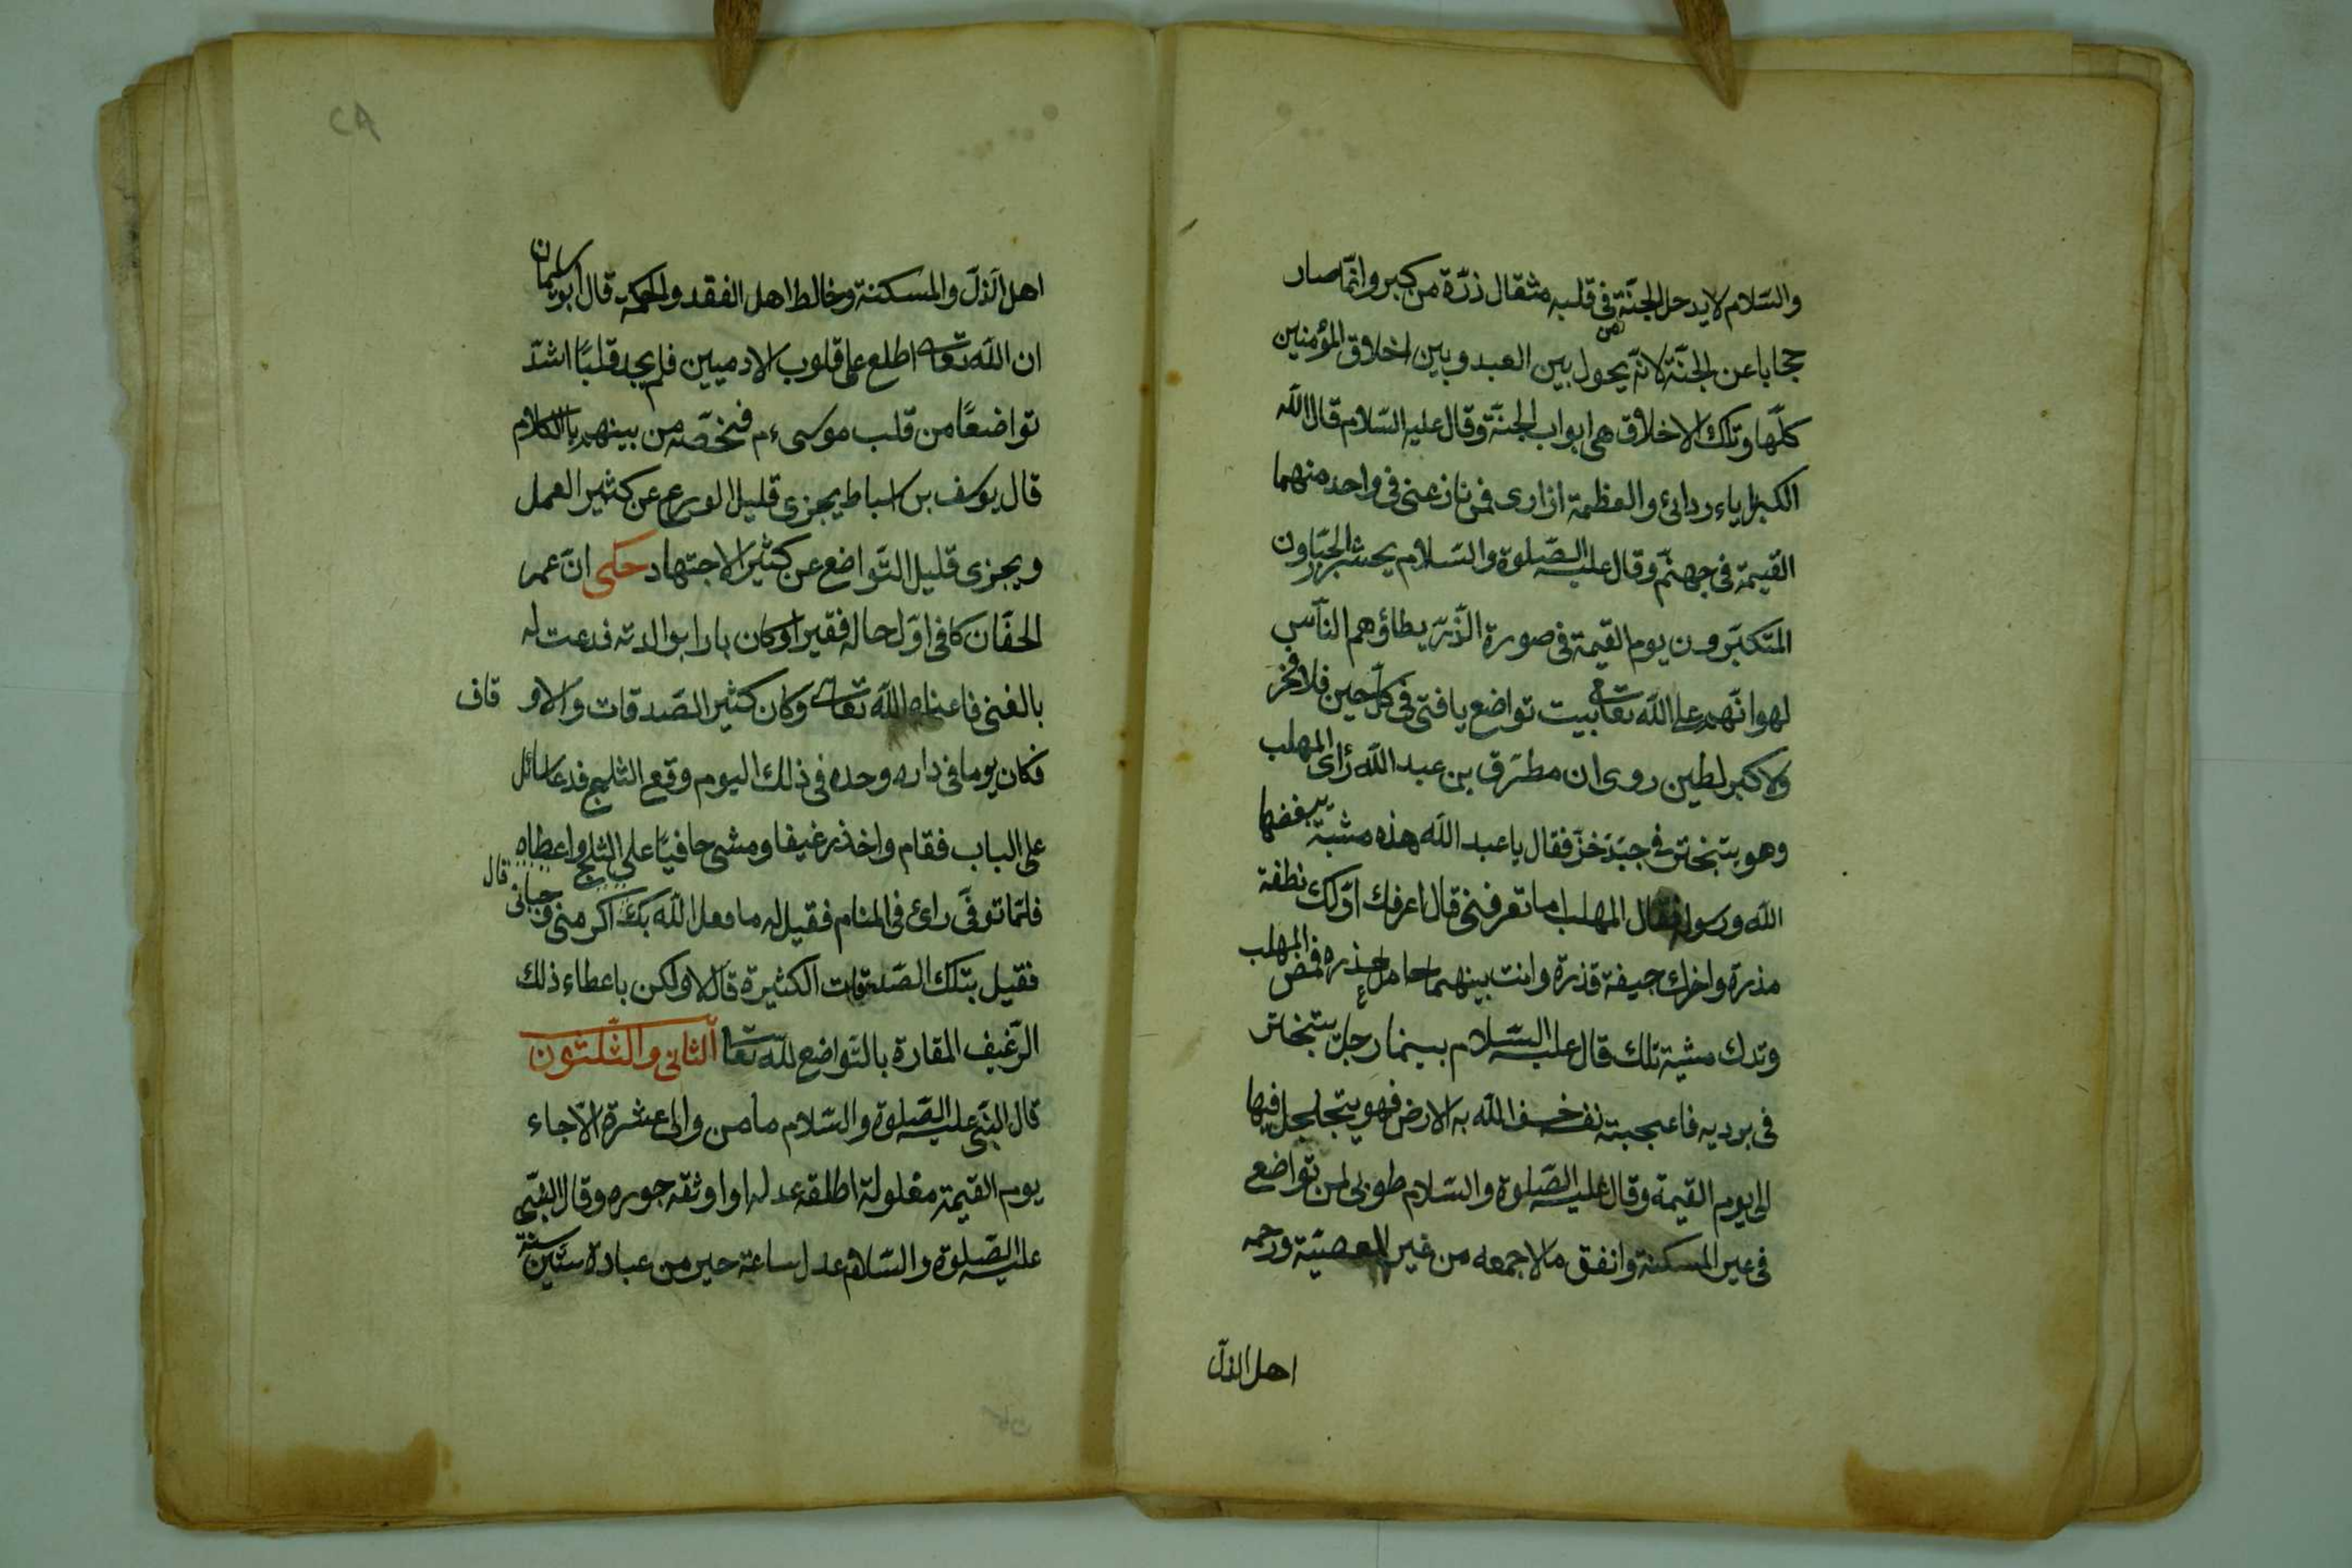 والسّلام لا يدخل الجنّة من فى قلبه مثقال ذرّة من كبر وانّما صار
حجابا عن الجنّة لانّه يحول بين العبد وبين اخلاق المؤمنين
كلّها وتلك الاخلاق هى ابواب الجنّة وقال عليه السّلام قال اللّه
الكبرياء ردائى والعظمة ازارى فمن نازعنى فى واحد منهما
القيمة فى جهنّم وقال عليه الصّلوة والسّلام يحشر الجبّارون
المتكبّرون يوم القيمة فى صورة الذّرّ يطاؤهم النّاس
لهوانهم على اللّه تعالى بيت تواضع يا فتى فى كلّ حين فلا فخر
ولا كبر لطين روى ان مطرّق بن عبد اللّه رأى المهلب
وهو يتبختر فى جبّة خزّ فقال يا عبد اللّه هذه مشية يبغضها
اللّه ورسوله فقال المهلب اما تعرفنى قال اعرفك اوّلك نطفة
مذرة واخرك جيفة قذرة وانت بينهما حامل عذرة فمضى المهلب
وترك مشيته تلك قال عليه السّلام بينما رجل يتبختر
فى برديه فاعجبته نف خسف اللّه به الارض فهو يتجلجل فيها
الى يوم القيمة وقال عليه الصّلوة والسّلام طوبى لمن تواضع
فى غير المسكنة وانفق مالا جمعه من غير المعصيّة ورحم
اهل الذلّ
اهل الذلّ والمسكنة وخالط اهل الفقد والحكمة قال ابو سليمان
ان اللّه تعالى اطلع على قلوب الادميين فلم يجد قلبًا اشدّ
تواضعًا من قلب موسى ءم فخصّه من بينهم بالكلام
قال يوسف بن اسباط يجزى قليل الورع عن كثير العمل
ويجزى قليل التّواضع عن كثير الاجتهاد حكى انّ عمر
الحفّان كا فى اوّل حاله فقيرا وكان بارا بوالدته فدعت له
بالغنى فاغناه اللّه تعالى وكان كثير الصّدقات والاو قاف
فكان يوما فى داره وحده فى ذلك اليوم وقع الثلج فدعا سائل
على الباب فقام واخذ رغيفا ومشى حافيًا على الثلج واعطاه
فلمّا توفّى راى فى المنام فقيل له ما فعل اللّه بك قال اكرمنى وحبانى
فقيل بتلك الصّدقات الكثيرة قال لا ولكن باعطاء ذلك
الرّغيف المقارة بالتّواضع للّه تعالى الثّانى والثّلثون
قال النّبىّ عليه الصّلوة والسّلام ما من والى عشرة الّا جاء
يوم القيمة مغلولة اطلقه عدله او اوثقه جوره وقال النّبىّ
عليه الصّلوة والسّلام عدل ساعة حير من عبادة ستّين سنة